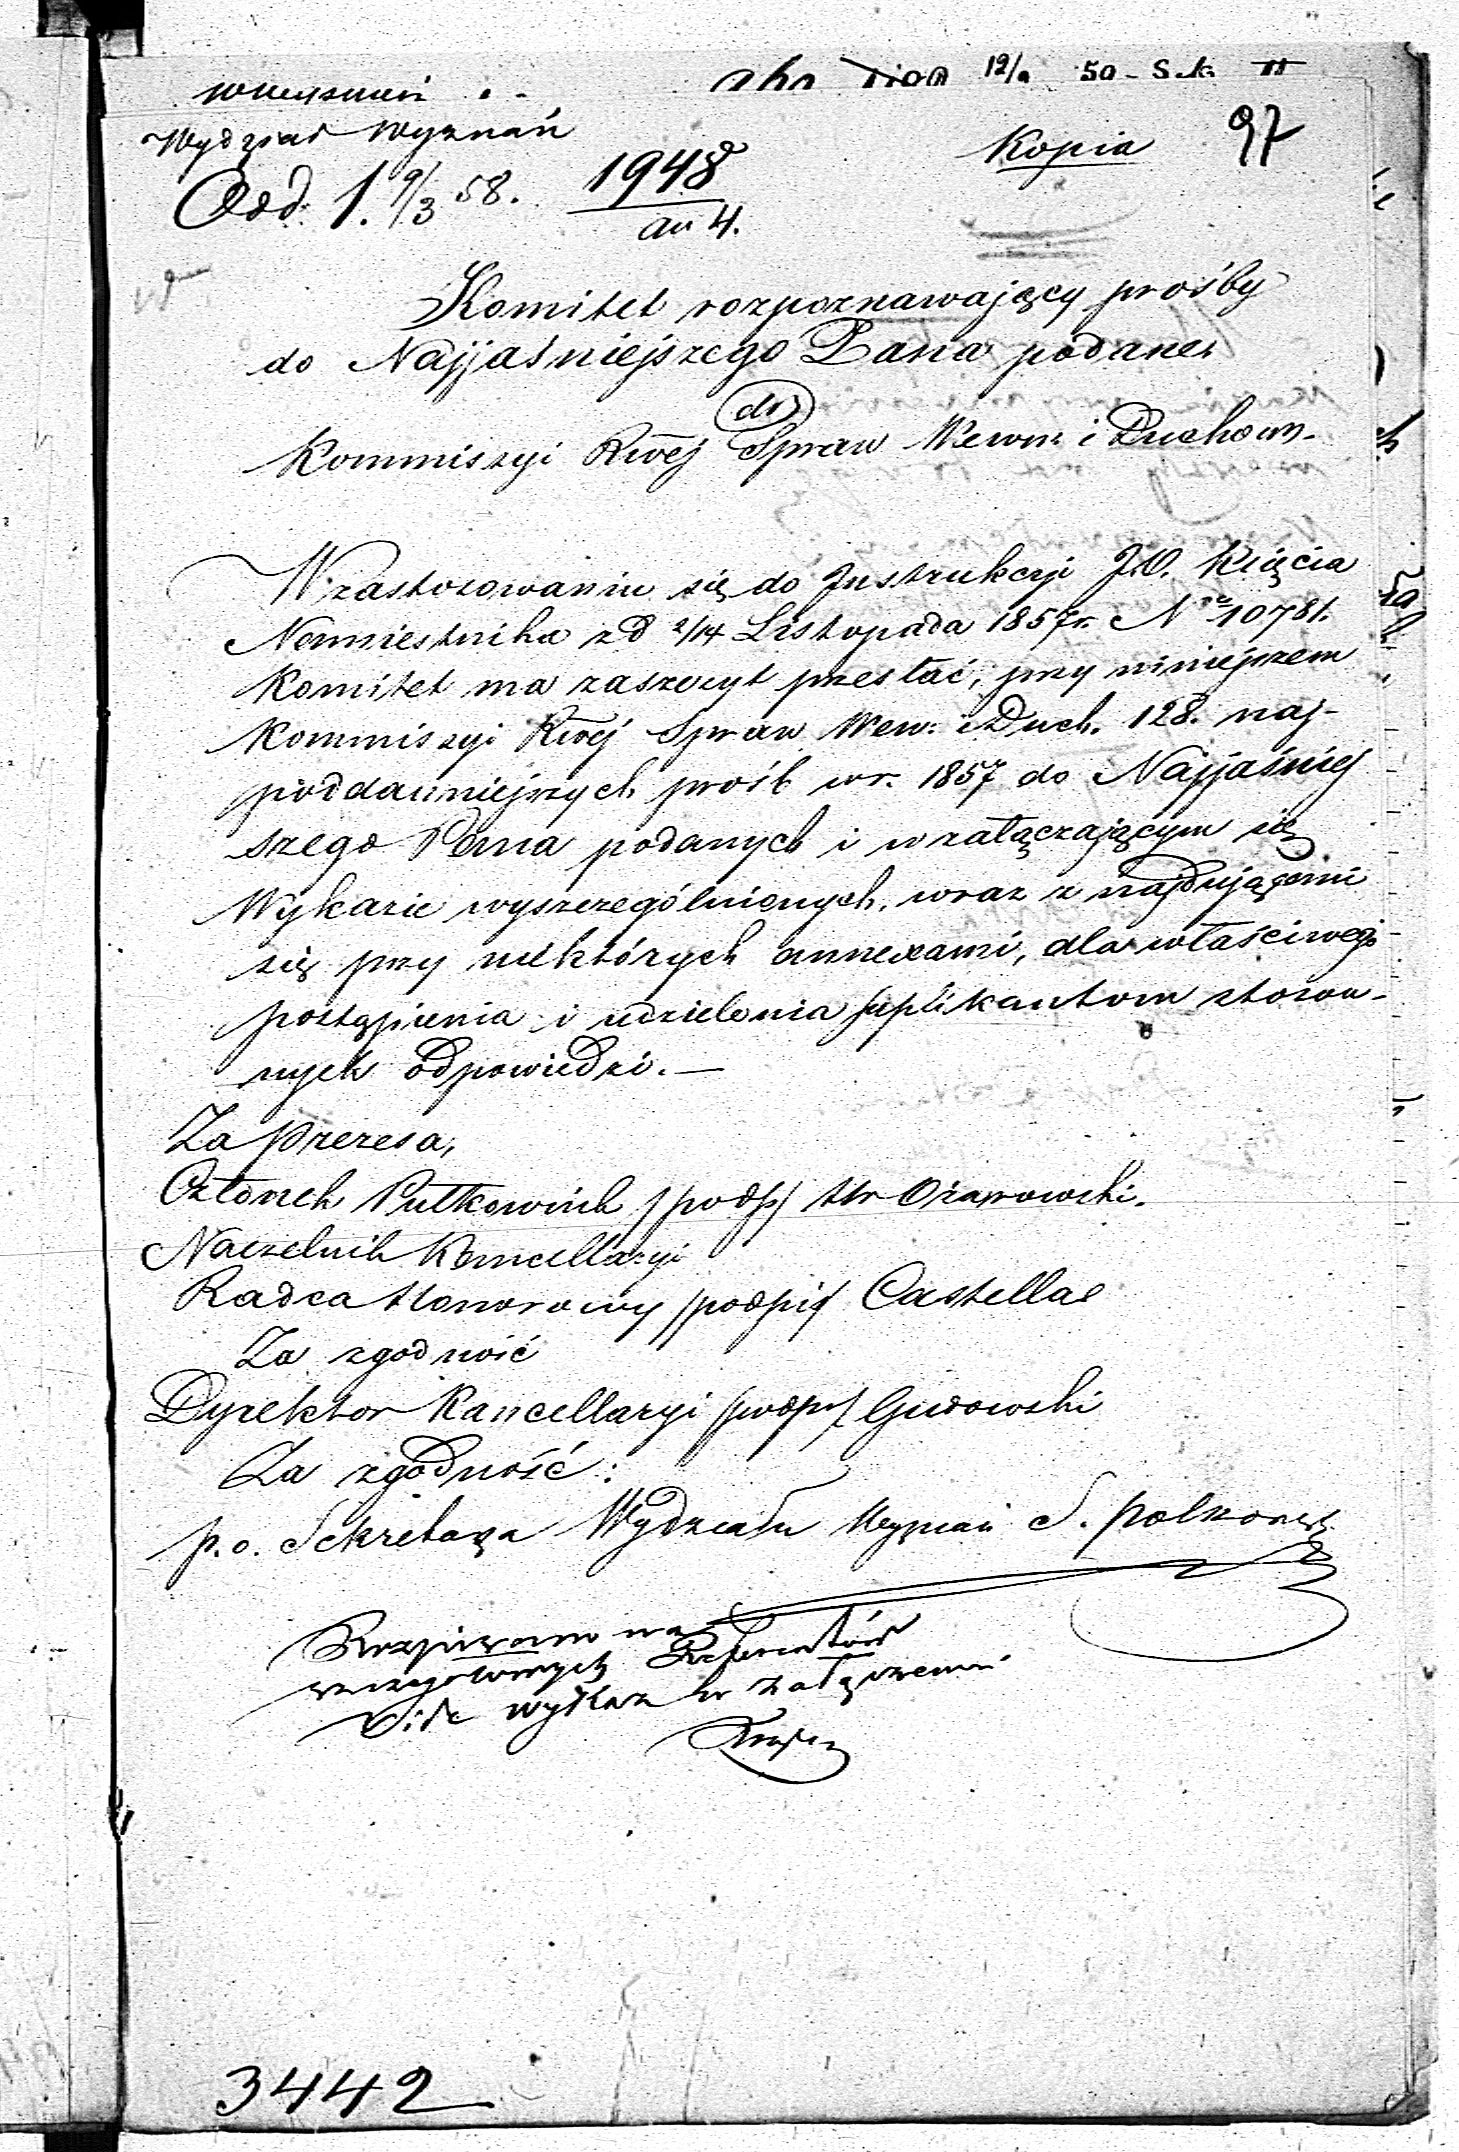 12/9 50 - S.k.
Wydział Wyznań
Kopia 97
Odd: 1. 9/3 58. 1948
an 4.
Komitet rozpoznawający prośby
do Najjaśniejszego Pana podane
do
Kommiszyi Rwéj Spraw Wewn: i Duchown.
W zastosowaniu się do Instrukcyi J.O. Księcia
Namiestnika z d 2/14 Listopada 1857 r. Nro 10781.
Komitet ma zaszczyt przesłać, przy niniejszem
Kommiszyi Rwéj Spraw Wew: i Duch. 128. naj-
poddanniejszych prośb w r. 1857 do Najjaśniej
szego Pana podanych i w załączającym się
Wykazie wyszczególnionych, wraz z najdującemi
się przy niektórych annexami, dla właściwego
postąpienia i udzielenia suplikantom stosow-
nych odpowiedzi. —
Za Prezesa,
Członek Pułkownik /podp/ Hr Ożarowski.
Naczelnik Kancellaryi
Radca Honorowy /podpis/ Castellaz
Za zgodność
Dyrektor Kancellaryi /podp/ Gudowski
Za zgodność:
p.o. Sekretarza Wydziału Wyznań S.
Rozpisano na
Referentów
Vide wykaz w załączeniu
3442